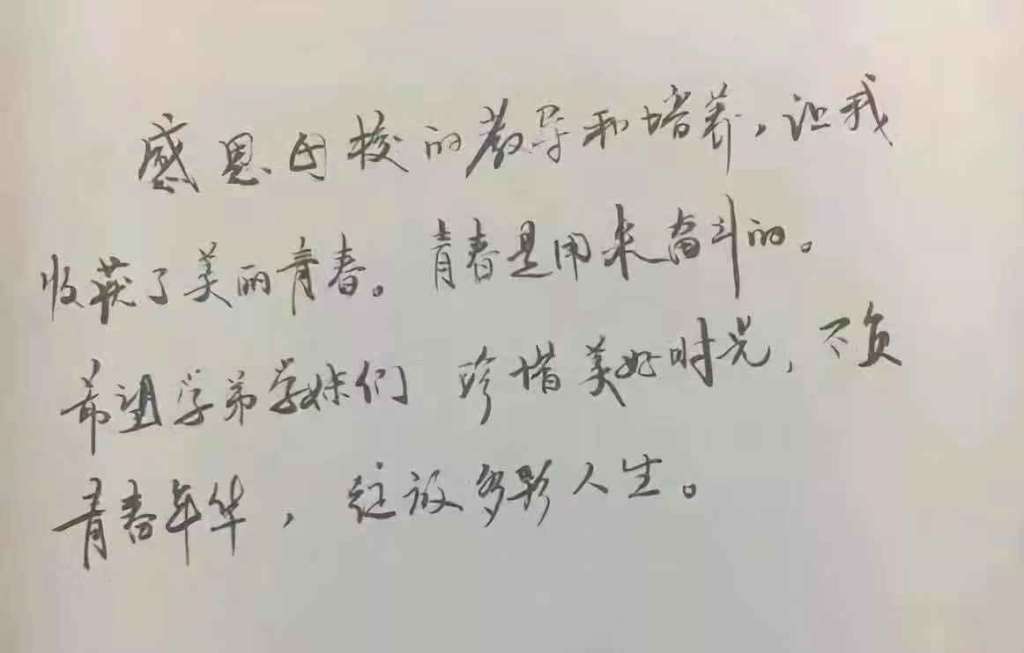 感恩母校的教导和培养，让我
收获了美丽青春。青春是用来奋斗的。
希望学弟学妹们 珍惜美好时光，不负
青春年华，绽放多彩人生。